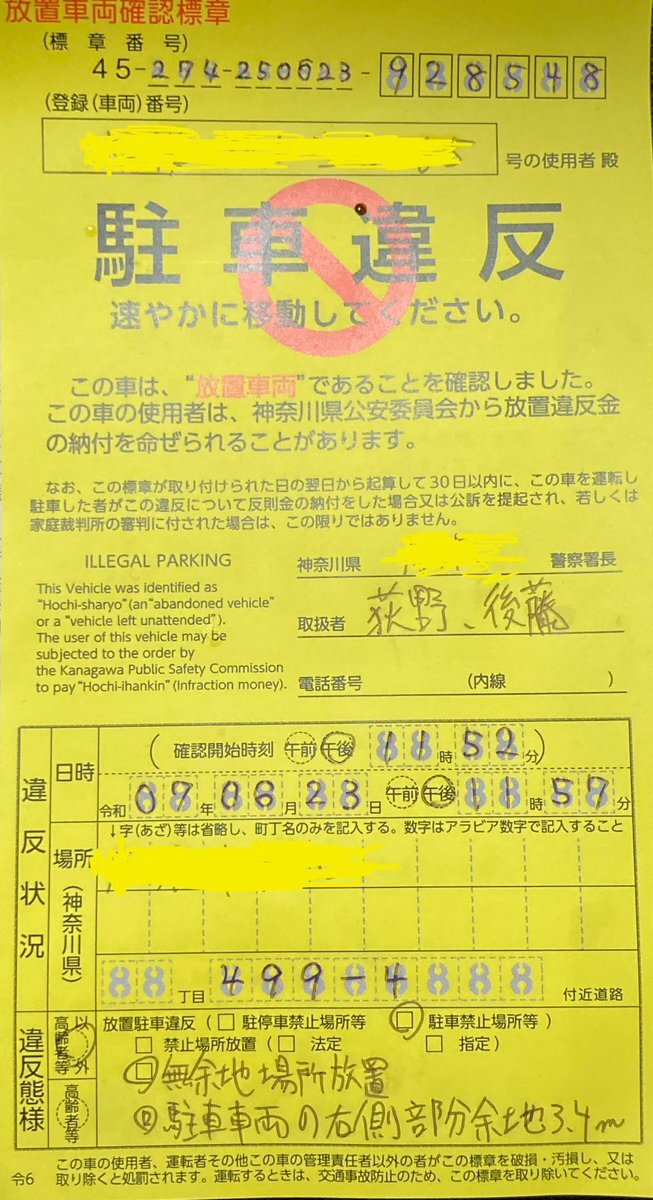 放置車両確認標章
(標章番号)
45-274-250623-928548
(登録(車両)番号)
号の使用者 殿
駐車違反
速やかに移動してください。
この車は、“放置車両”であることを確認しました。
この車の使用者は、神奈川県公安委員会から放置違反金
の納付を命ぜられることがあります。
なお、この標章が取り付けられた日の翌日から起算して30日以内に、この車を運転し
駐車した者がこの違反について反則金の納付をした場合又は公訴を提起され、若しくは
家庭裁判所の審判に付された場合は、この限りではありません。
ILLEGAL PARKING
This Vehicle was identified as
“Hochi-sharyo”(an“abandoned vehicle”
or a “vehicle left unattended”).
The user of this vehicle may be
subjected to the order by
the Kanagawa Public Safety Commission
to pay“Hochi-ihankin”(Infraction money).
神奈川県 警察署長
取扱者 荻野、後藤
電話番号 (内線 )
違反状況(神奈川県)
日時
(確認開始時刻 午前 午後 11時52分)
令和07年06月23日 午前 午後 11時57分
場所
↓字(あざ)等は省略し、町丁名のみを記入する。数字はアラビア数字で記入すること
丁目 499-4 付近道路
違反態様
高齢者等以外
高齢者等
放置駐車違反(□ 駐停車禁止場所等 □ 駐車禁止場所等)
□ 禁止場所放置(□ 法定 □ 指定)
□無余地場所放置
駐車車両の右側部分余地3.4m
令6
この車の使用者、運転者その他この車の管理責任者以外の者がこの標章を破損・汚損し、又は
取り除くと処罰されます。運転するときは、交通事故防止のため、この標章を取り除いてください。